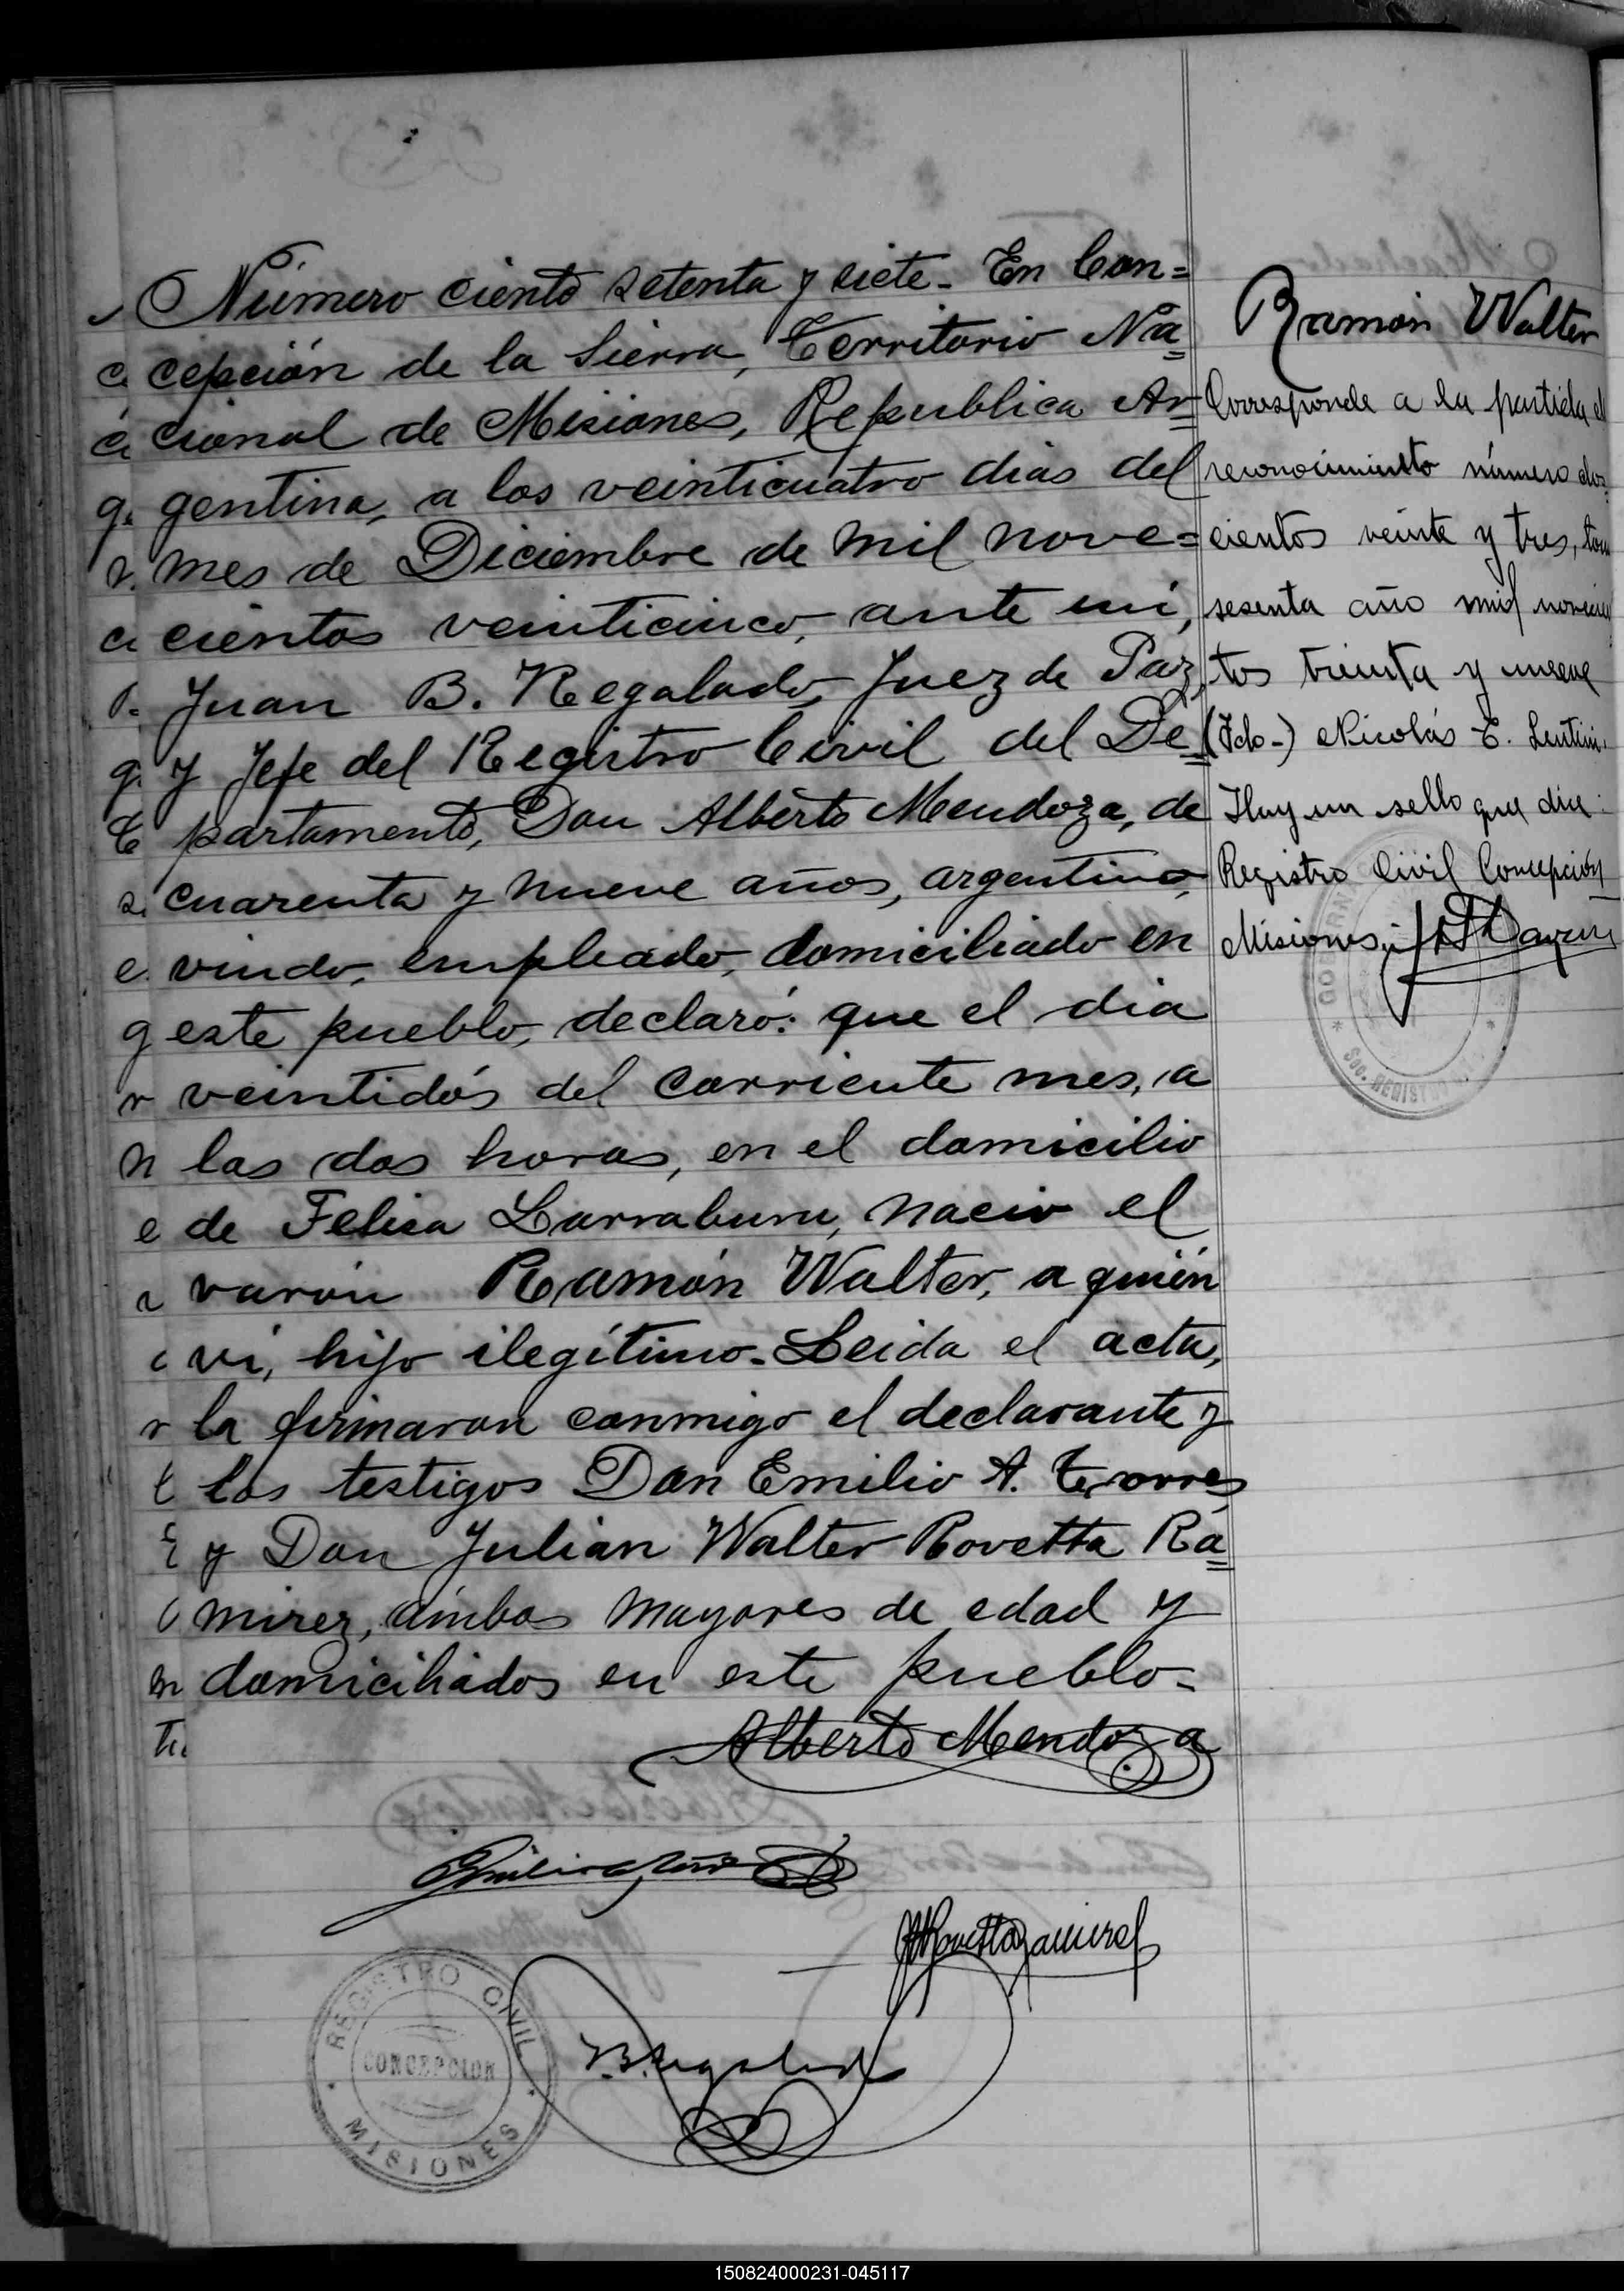 Número ciento setenta y siete. En Con=
cepción de la Sierra, Territorio Na=
cional de Misiones, Republica Ar=
gentina, a los veinticuatro dias del
mes de Diciembre de mil nove=
cientos veinticinco, ante mí,
Juan B. Regalado, Juez de Paz,
y Jefe del Registro Civil del De=
partamento, Don Alberto Mendoza, de
cuarenta y nueve años, argentino,
viudo, empleado, domiciliado en
este pueblo, declaró: que el dia
veintidós del corriente mes, a
las dos horas, en el domicilio
de Felisa Larraburu, nació el
varón Ramón Walter, a quién
ví, hijo ilegítimo. Leida el acta,
la firmaron conmigo el declarante y
los testigos Don Emilio A. Torres
y Don Julián Walter Rovetta Ra=
mirez, ámbos mayores de edad y
domiciliados en este pueblo=
Alberto Mendoza
J.B. Regalado
REGISTRO CIVIL
CONCEPCION
MISIONES
Ramón Walter
Corresponde a la partida el
reconocimiento número dos
cientos veinte y tres, tomo
sesenta año mil novecien
tos treinta y nueve
(Fdo-) Nicolás E. Lentini.
Hay un sello que dice:
Registro Civil Concepción
Misiones.
REGISTRO
150824000231-045117